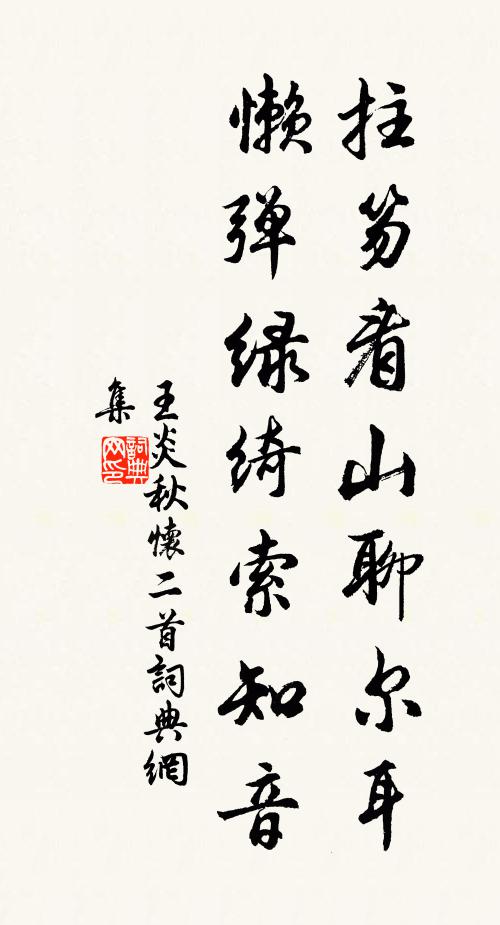 拄笏看山聊尔耳
懒弹绿绮索知音
王炎秋懷二首詞典網
集
詞典
网印